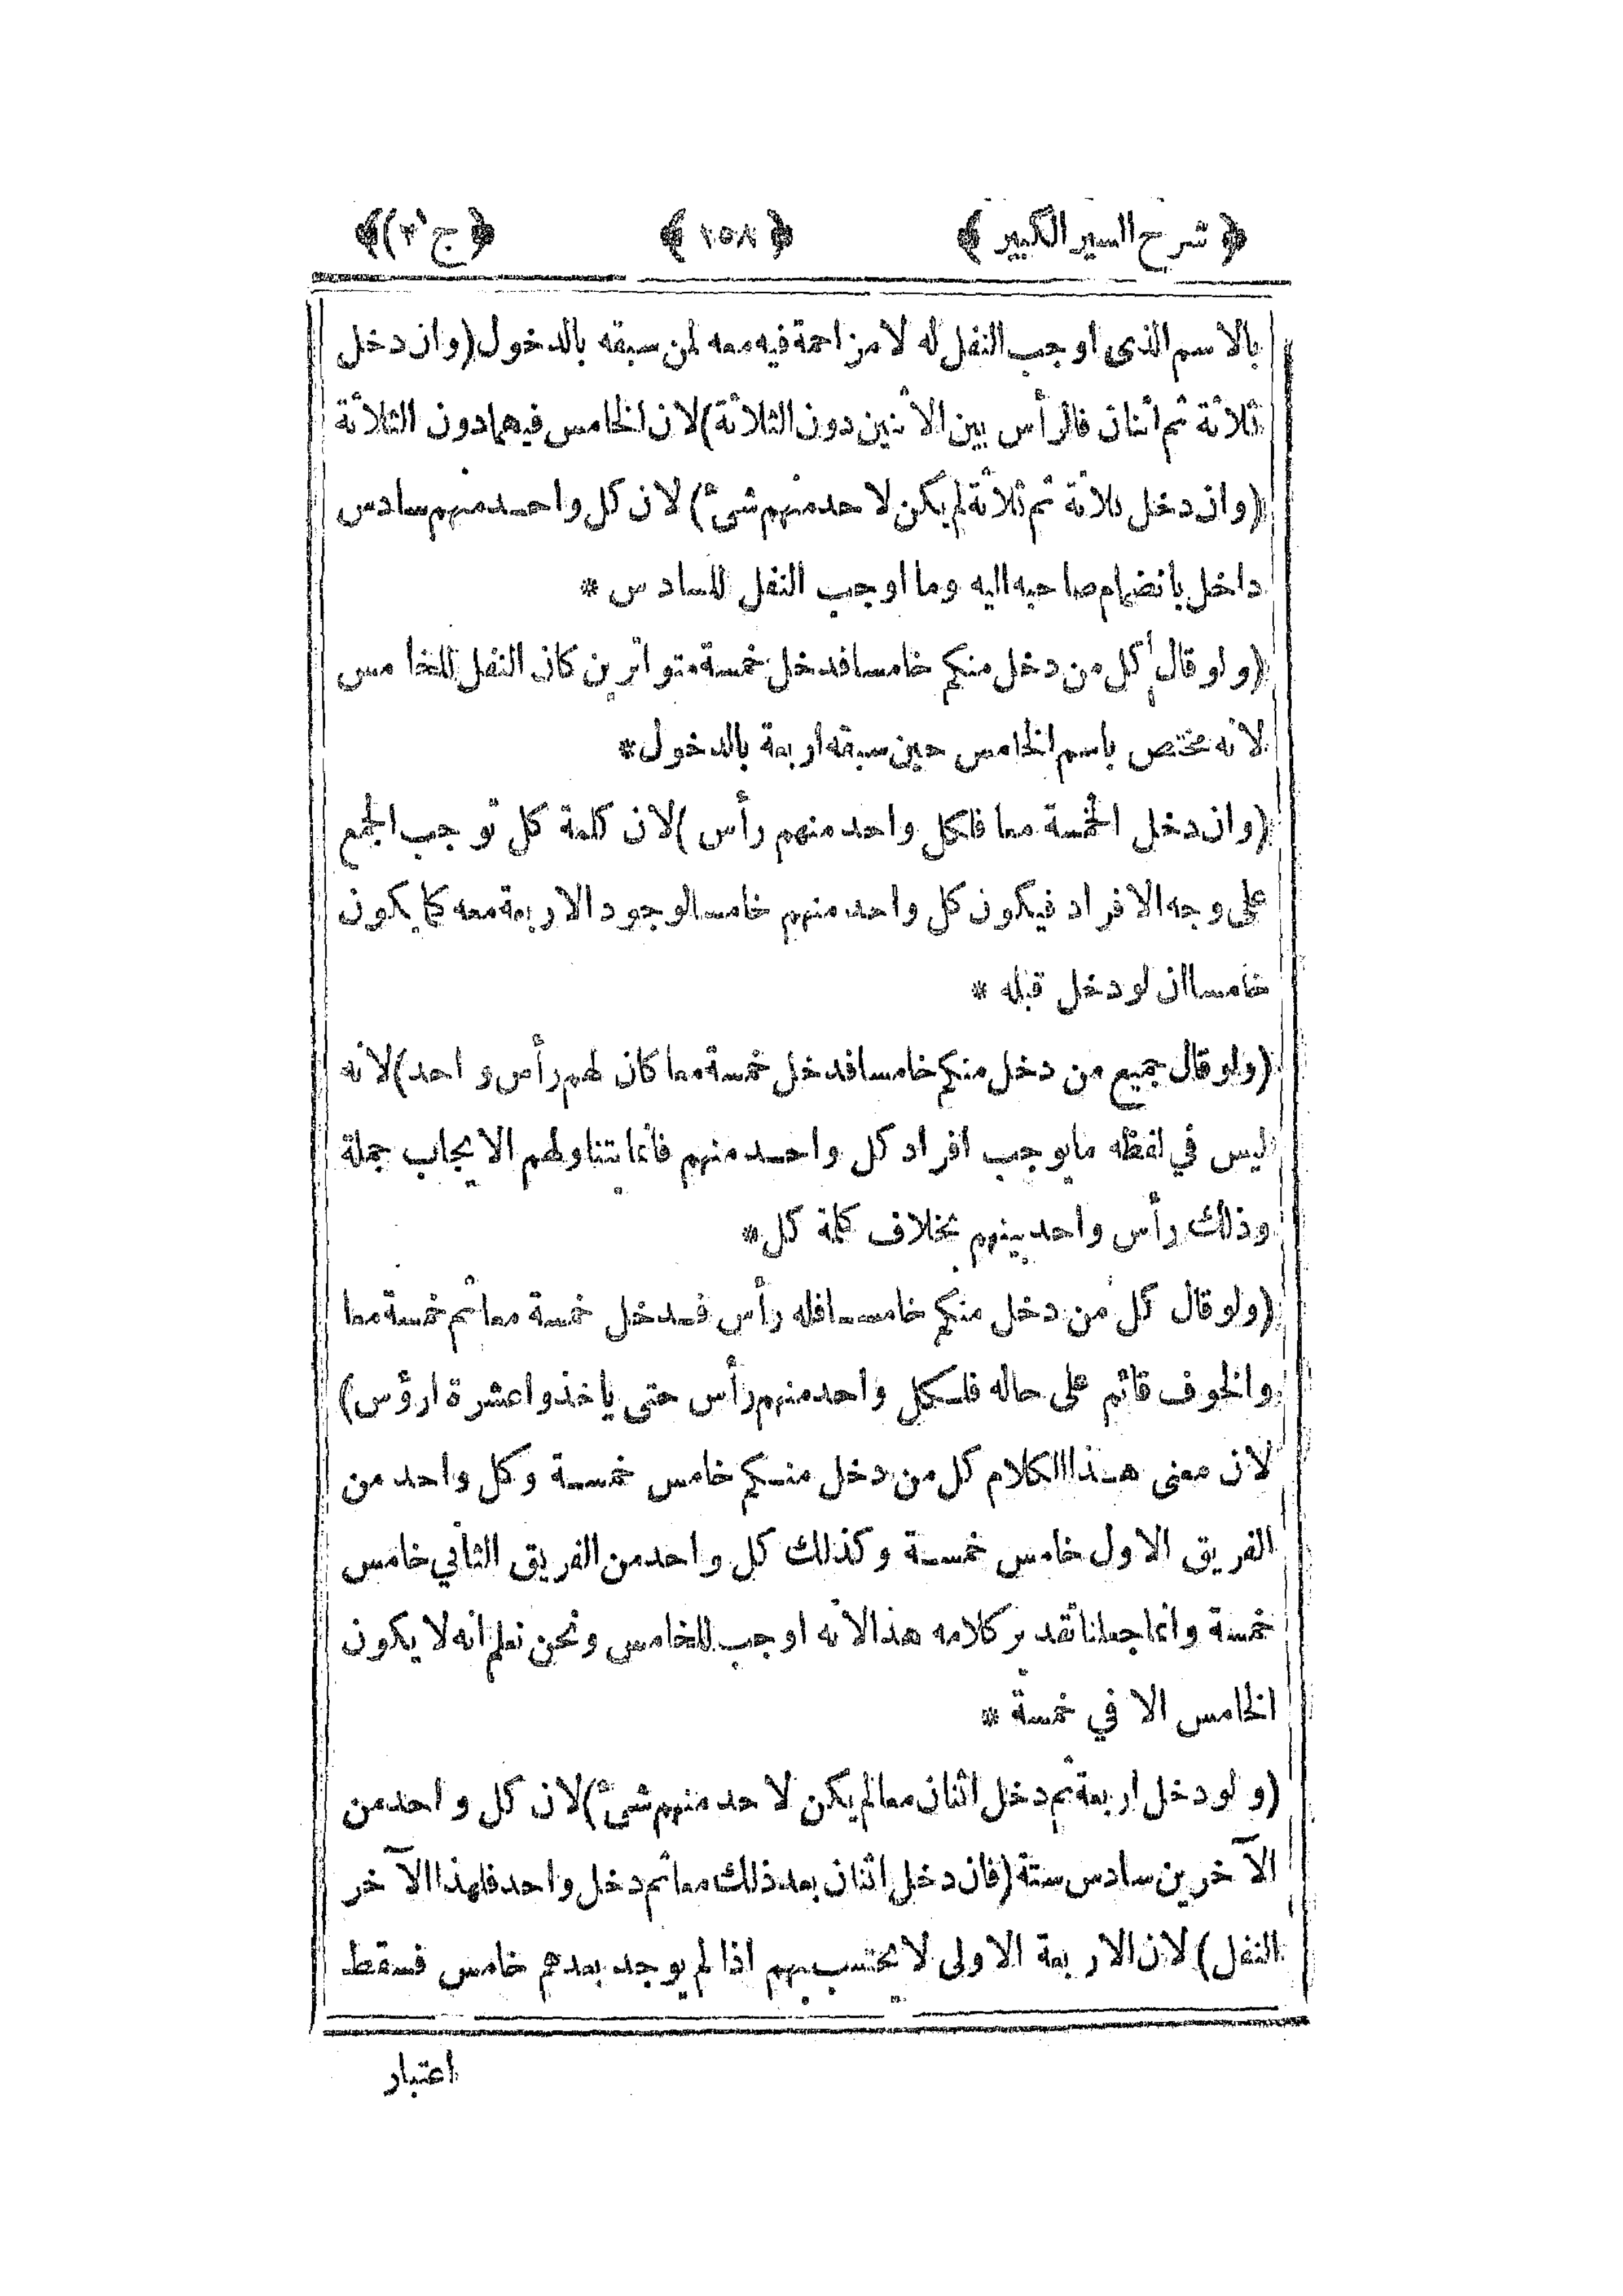 ﴿ شرح السير الكبير ﴾ ﴿ ١٥٨ ﴾ ﴿ ج (٣) ﴾
بالاسم الذى اوجب النفل له لا مزاحمة فيه معه لمن سبقه بالدخول (وان دخل
ثلاثة ثم اثنان فالرأس بين الاثنين دون الثلاثة) لان الخامس فيهما دون الثلاثة
(وان دخل ثلاثة ثم ثلاثة لم يكن لاحد منهم شئ) لان كل واحد منهم سادس
داخل بانضمام صاحبه اليه وما اوجب النفل للسادس *
(ولو قال كل من دخل منكم خامسا فدخل خمسة متواترين كان النفل للخامس
لانه مختص باسم الخامس حين سبقه اربعة بالدخول *
(وان دخل الخمسة معا فلكل واحد منهم رأس) لان كلمة كل توجب الجمع
على وجه الافراد فيكون كل واحد منهم خامسا لوجود الاربعة معه كما يكون
خامسا ان لو دخل قبله *
(ولو قال جميع من دخل منكم خامسا فدخل خمسة معا كان لهم رأس واحد) لانه
ليس في لفظه ما يوجب افراد كل واحد منهم فانما يتناولهم الايجاب جملة
وذلك رأس واحد بينهم بخلاف كلمة كل *
(ولو قال كل من دخل منكم خامسا فله رأس فدخل خمسة معا ثم خمسة معا
والخوف قائم على حاله فلكل واحد منهم رأس حتى ياخذوا عشرة ارؤس)
لان معنى هذا الكلام كل من دخل منكم خامس خمسة وكل واحد من
الفريق الاول خامس خمسة وكذلك كل واحد من الفريق الثاني خامس
خمسة وانما جعلنا تقدير كلامه هذا لانه اوجب للخامس ونحن نعلم انه لا يكون
الخامس الا في خمسة *
(ولو دخل اربعة ثم دخل اثنان معا لم يكن لاحد منهم شئ) لان كل واحد من
الآخرين سادس ستة (فان دخل اثنان بعد ذلك معا ثم دخل واحد فلهذا الآخر
النفل) لان الاربعة الاولى لا يحتسب بهم اذا لم يوجد بعدهم خامس فسقط
اعتبار